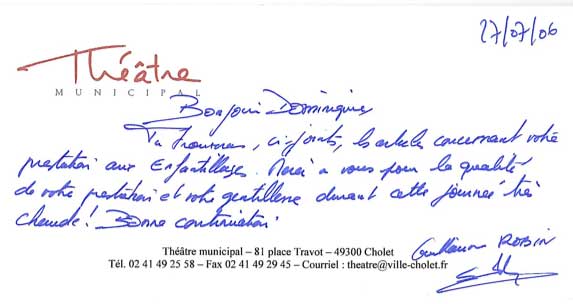 27/07/06
Théâtre
MUNICIPAL
Bonjour Dominique
Tu trouveras, ci-joints, les articles concernant votre
prestation aux Enfantillages. Merci a vous pour la qualité
de votre prestation et votre gentillesse durant cette journée très
chaude! Bonne continuation
Guillaume ROBIN
Théâtre municipal – 81 place Travot – 49300 Cholet
Tél. 02 41 49 25 58 – Fax 02 41 49 29 45 – Courriel : theatre@ville-cholet.fr